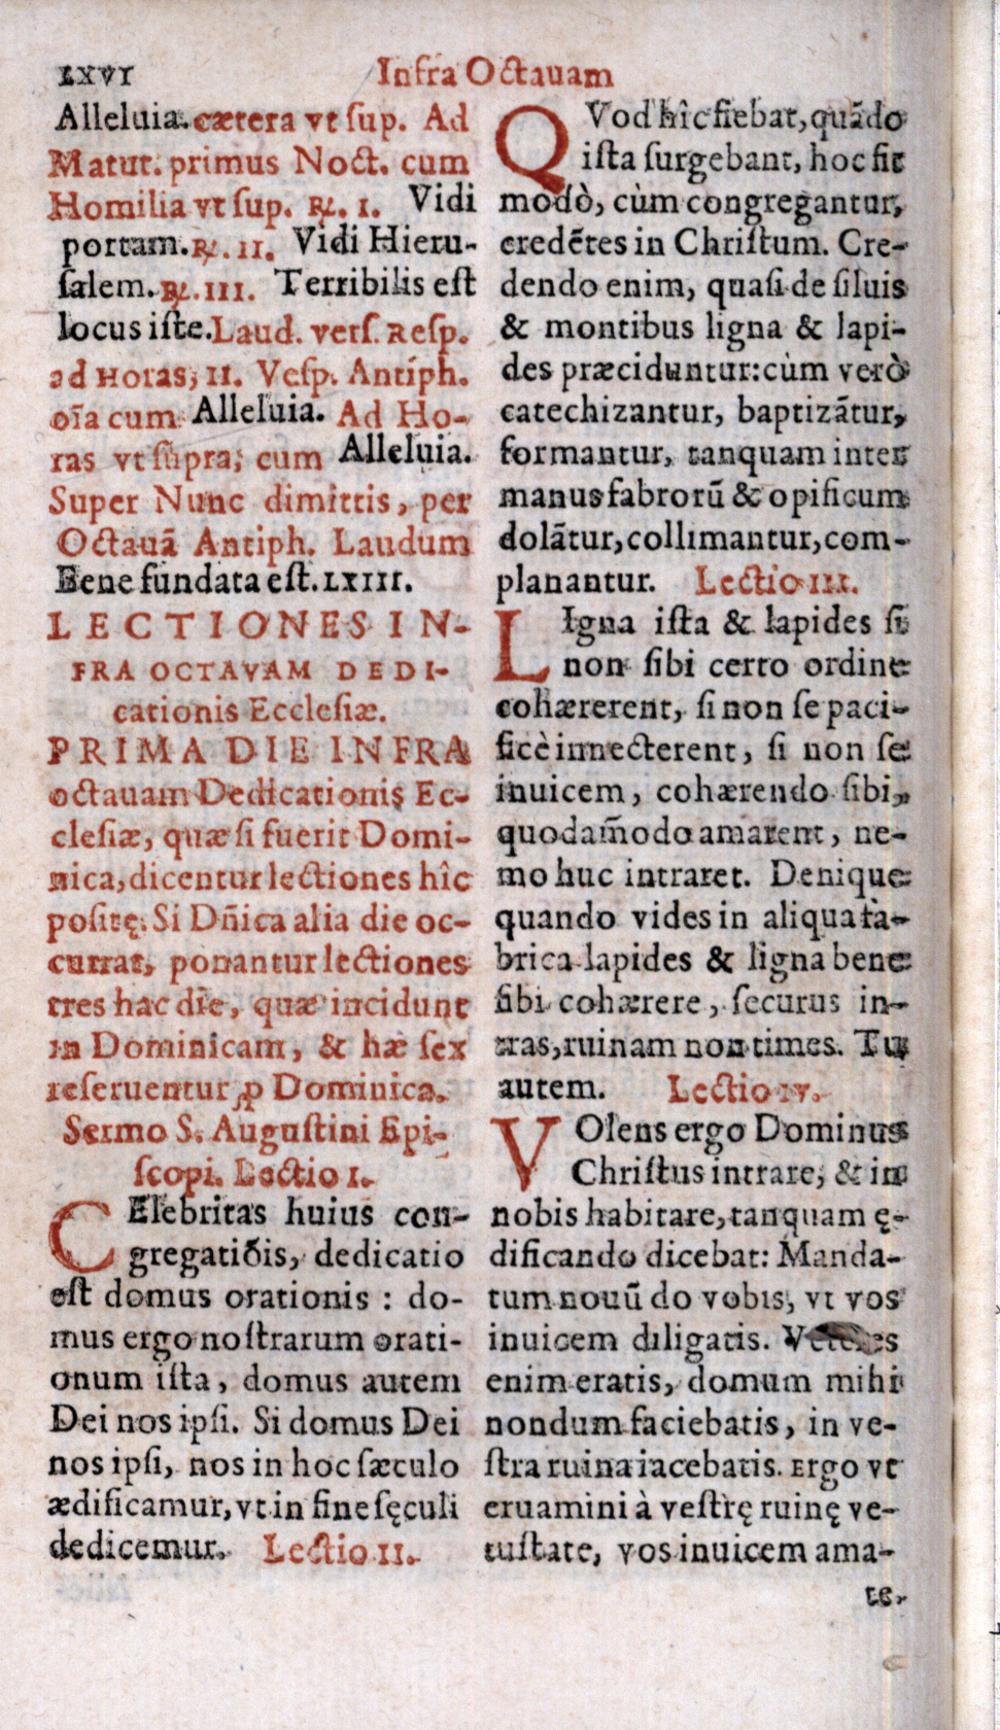 LXVI
Infra Octauam
Alleluia. cætera vt ſup. Ad
Matut. primus Noct. cum
Homilia vt ſup. ℟. I. Vidi
portam. ℟. II. Vidi Hieru-
ſalem. ℟. III. Terribilis eſt
locus iſte. Laud. verſ. Reſp.
ad Horas, II. Veſp. Antiph.
oīa cum Alleluia. Ad Ho-
ras vt ſupra, cum Alleluia.
Super Nunc dimittis, per
Octauã Antiph. Laudum
Bene fundata eſt. LXIII.
LECTIONES IN-
FRA OCTAVAM DEDI-
cationis Eccleſiæ.
PRIMA DIE INFRA
octauam Dedicationis Ec-
cleſiæ, quæ ſi fuerit Domi-
nica, dicentur lectiones hîc
poſitę. Si Dñica alia die oc-
currat, ponantur lectiones
tres hac die, quæ incidunt
in Dominicam, & hæ ſex
reſeruentur ꝓ Dominica.
Sermo S. Auguſtini Epi-
ſcopi. Lectio I.
CElebritas huius con-
gregatiõis, dedicatio
eſt domus orationis : do-
mus ergo noſtrarum orati-
onum iſta, domus autem
Dei nos ipſi. Si domus Dei
nos ipſi, nos in hoc ſæculo
ædificamur, vt in fine ſęculi
dedicemur. Lectio II.
QVod hîc fiebat, quãdo
iſta ſurgebant, hoc fit
modò, cùm congregantur,
credẽtes in Chriſtum. Cre-
dendo enim, quaſi de ſiluis
& montibus ligna & lapi-
des præciduntur: cùm verò
catechizantur, baptizãtur,
formantur, tanquam inter
manus fabrorũ & opificum
dolãtur, collimantur, com-
planantur. Lectio III.
LIgna iſta & lapides ſi
non ſibi certo ordine
cohærerent, ſi non ſe paci-
ficè innecterent, ſi non ſe
inuicem, cohærendo ſibi,
quodam̃odo amarent, ne-
mo huc intraret. Denique
quando vides in aliqua fa-
brica lapides & ligna bene
ſibi cohærere, ſecurus in-
tras, ruinam non times. Tu
autem. Lectio IV.
VOlens ergo Dominus
Chriſtus intrare, & in
nobis habitare, tanquam ę-
dificando dicebat: Manda-
tum nouũ do vobis, vt vos
inuicem diligatis.
enim eratis, domum mihi
nondum faciebatis, in ve-
ſtra ruina iacebatis. Ergo vt
eruamini à veſtrę ruinę ve-
tuſtate, vos inuicem ama-
te.